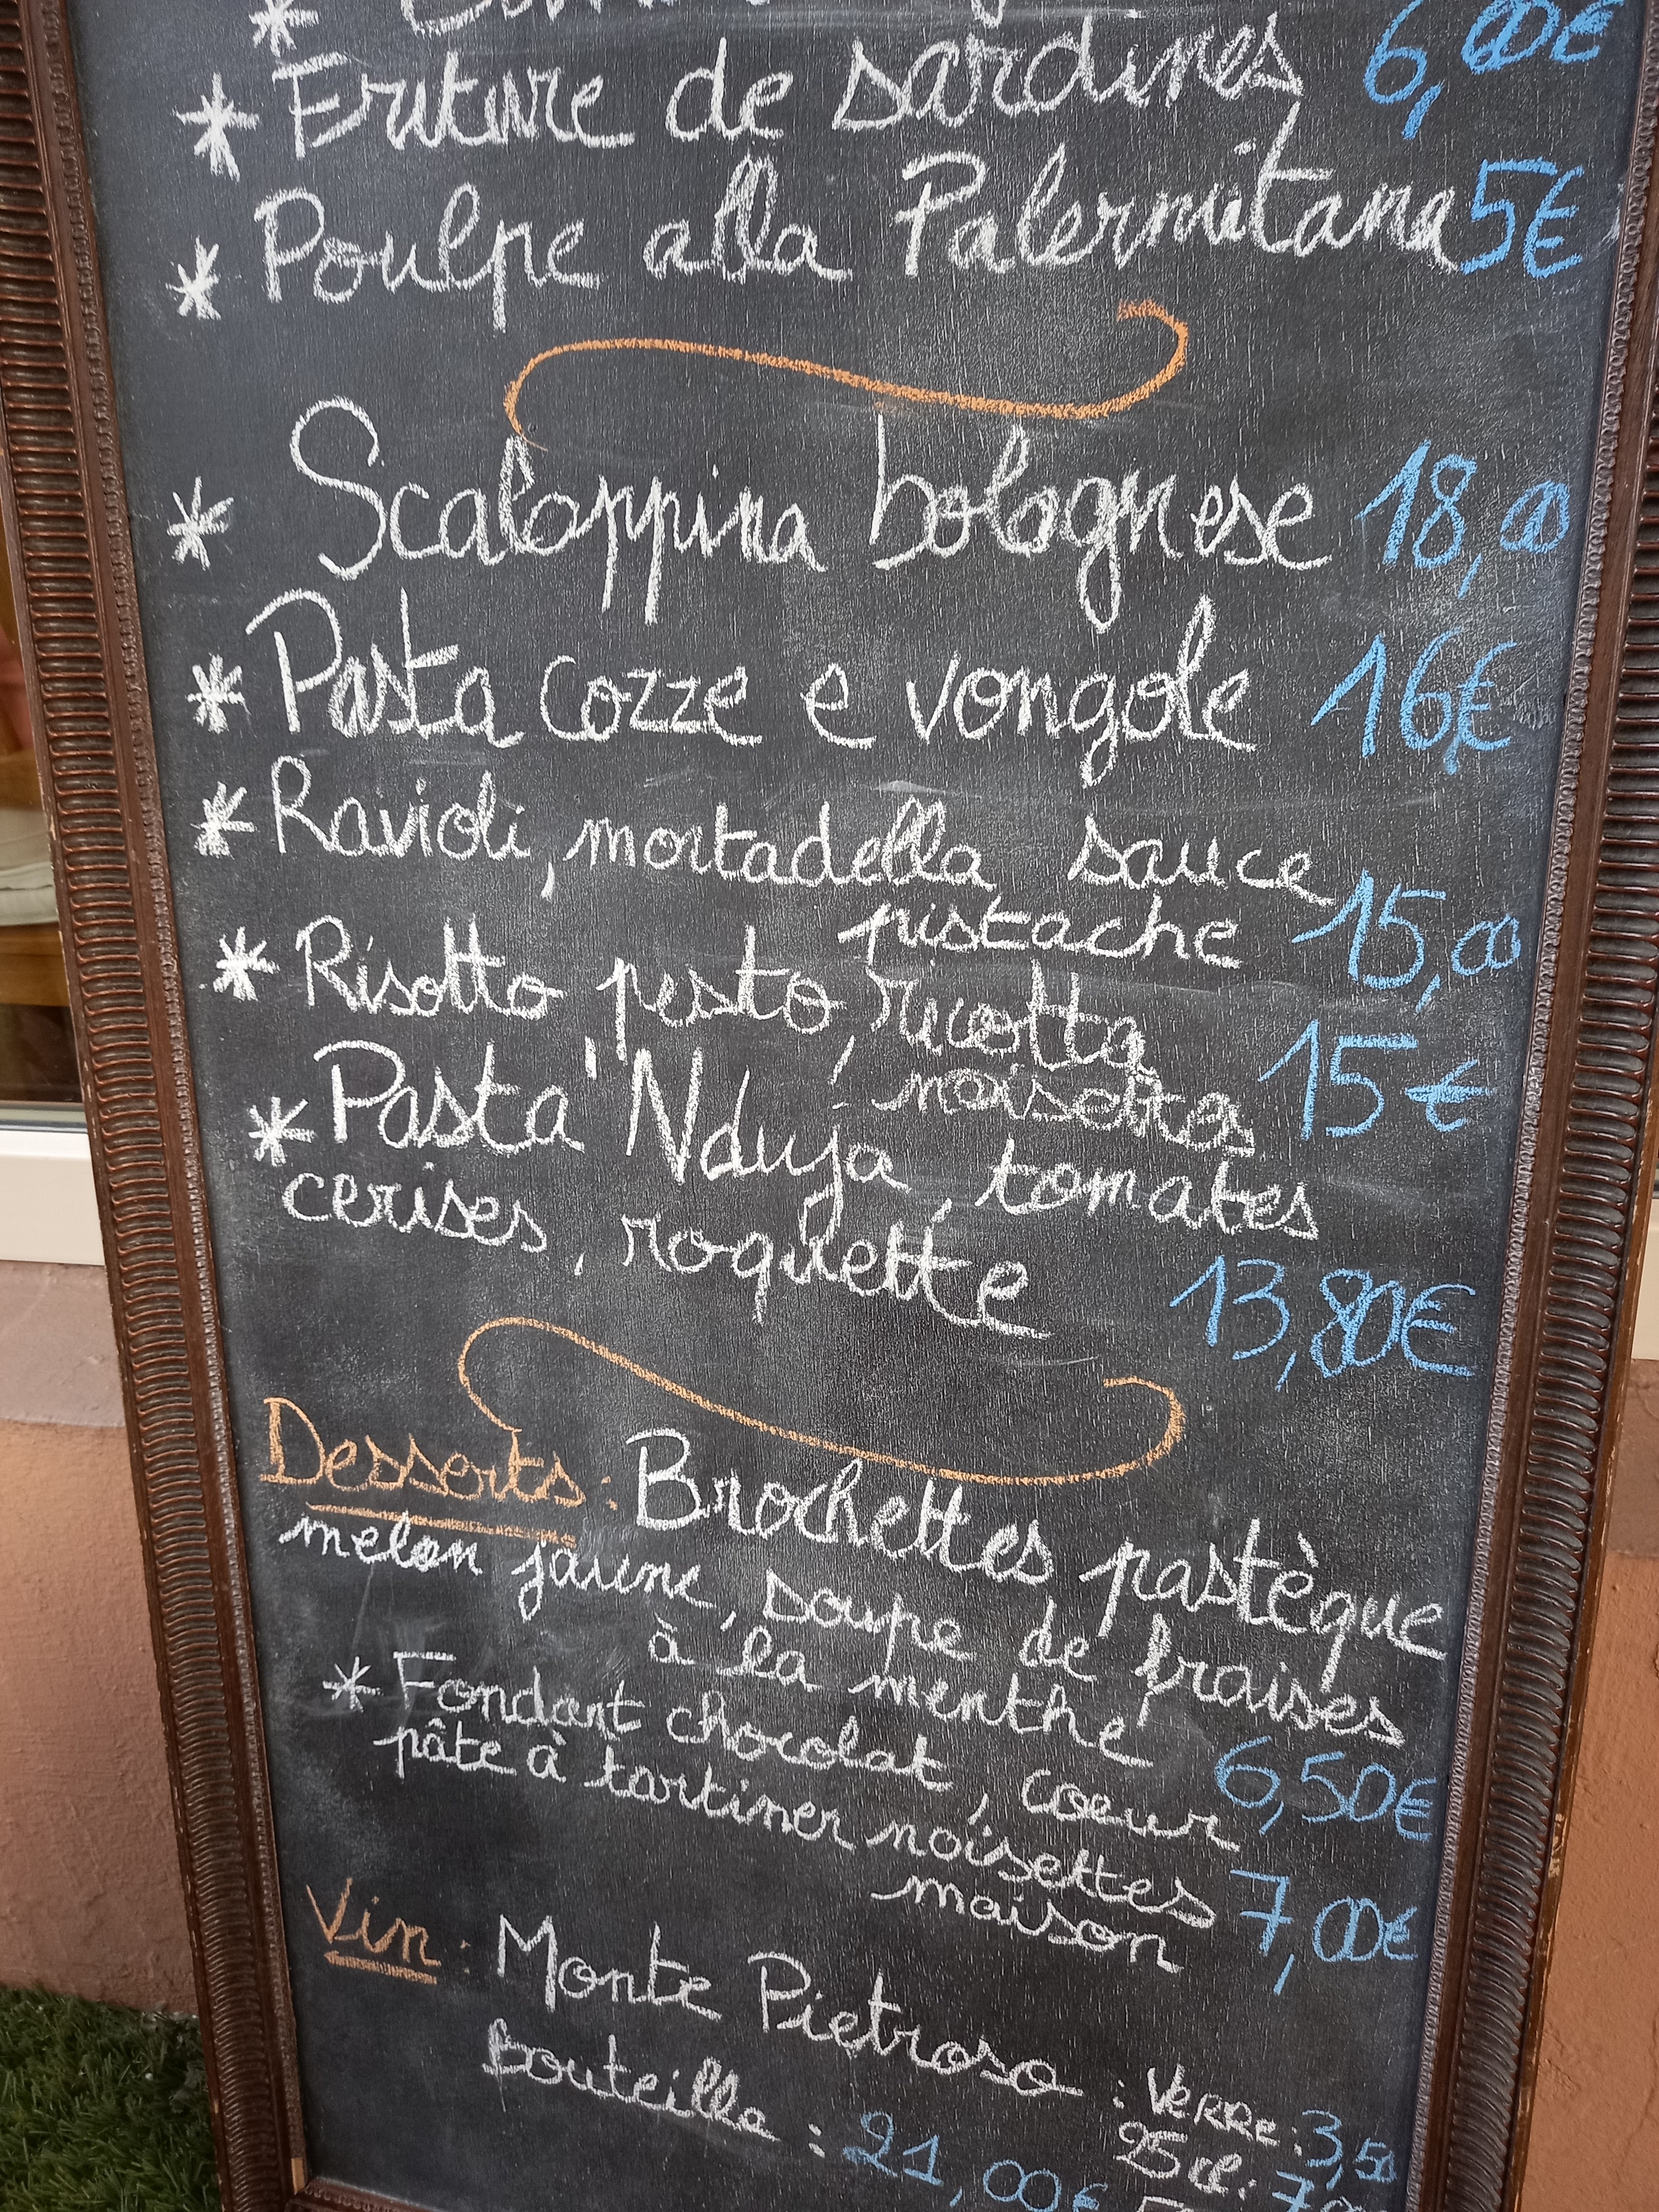 * Friture de sardines 6,00€
* Poulpe alla Palermitana 5€
* Scaloppina bolognese 18,00
* Pasta cozze e vongole 16€
* Ravioli, mortadella sauce
pistache 15,00
* Risotto pesto, ricotta,
noisettes 15€
* Pasta 'Nduja, tomates
cerises, roquette
13,80€
Desserts : Brochettes pastèque
melon jaune, soupe de fraises
à la menthe 6,50€
* Fondant chocolat, coeur
pâte à tartiner noisettes
maison 7,00€
Vin : Monte Pietroso : VERRE : 3,50
25 cl :
bouteille : 21,00€